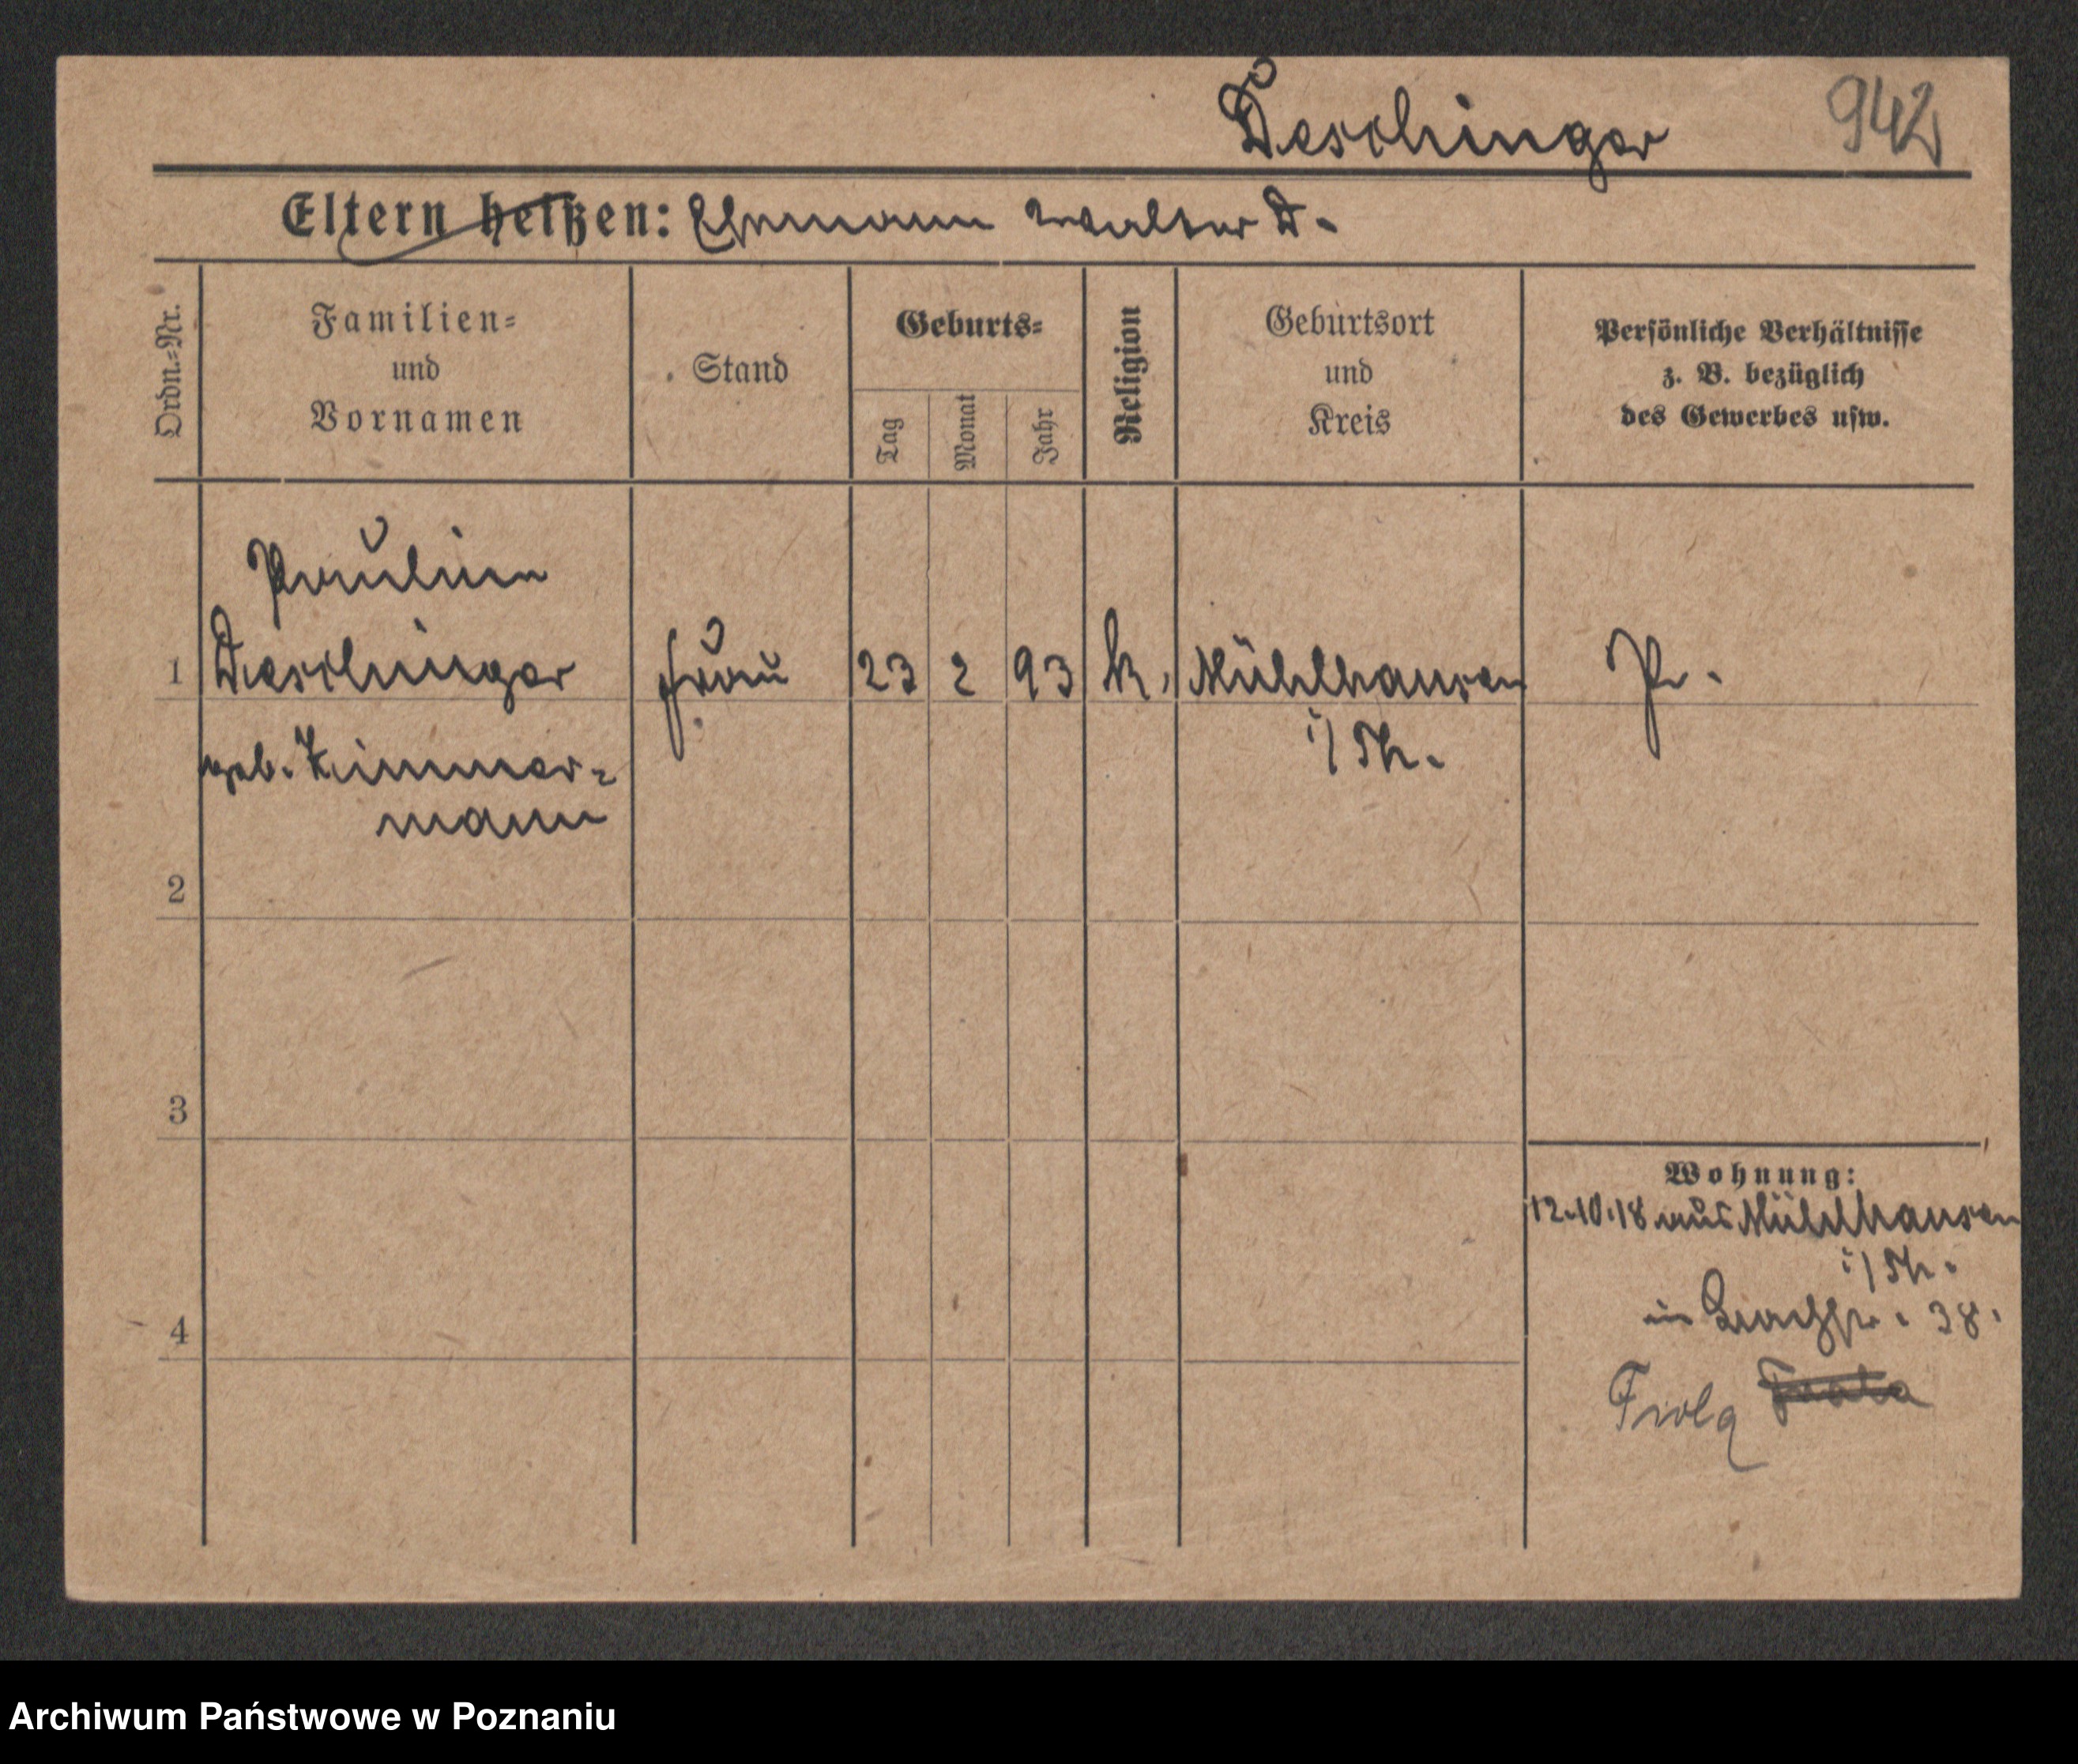 Deschinger 942
Eltern heißen: Ehemann Walter D.
Ordn.=Nr.
Familien=
und
Vornamen
Stand
Geburts=
Tag
Monat
Jahr
Religion
Geburtsort
und
Kreis
Persönliche Verhältnisse
z. B. bezüglich
des Gewerbes usw.
Pauline
1 Deschinger Frau 23 2 93 k. Mühlhausen Pr.
geb. Zimmer-
i/Th.
mann
2
3
4
Wohnung:
12.10.18 aus Mühlhausen
i/Th.
in 38.
Archiwum Państwowe w Poznaniu